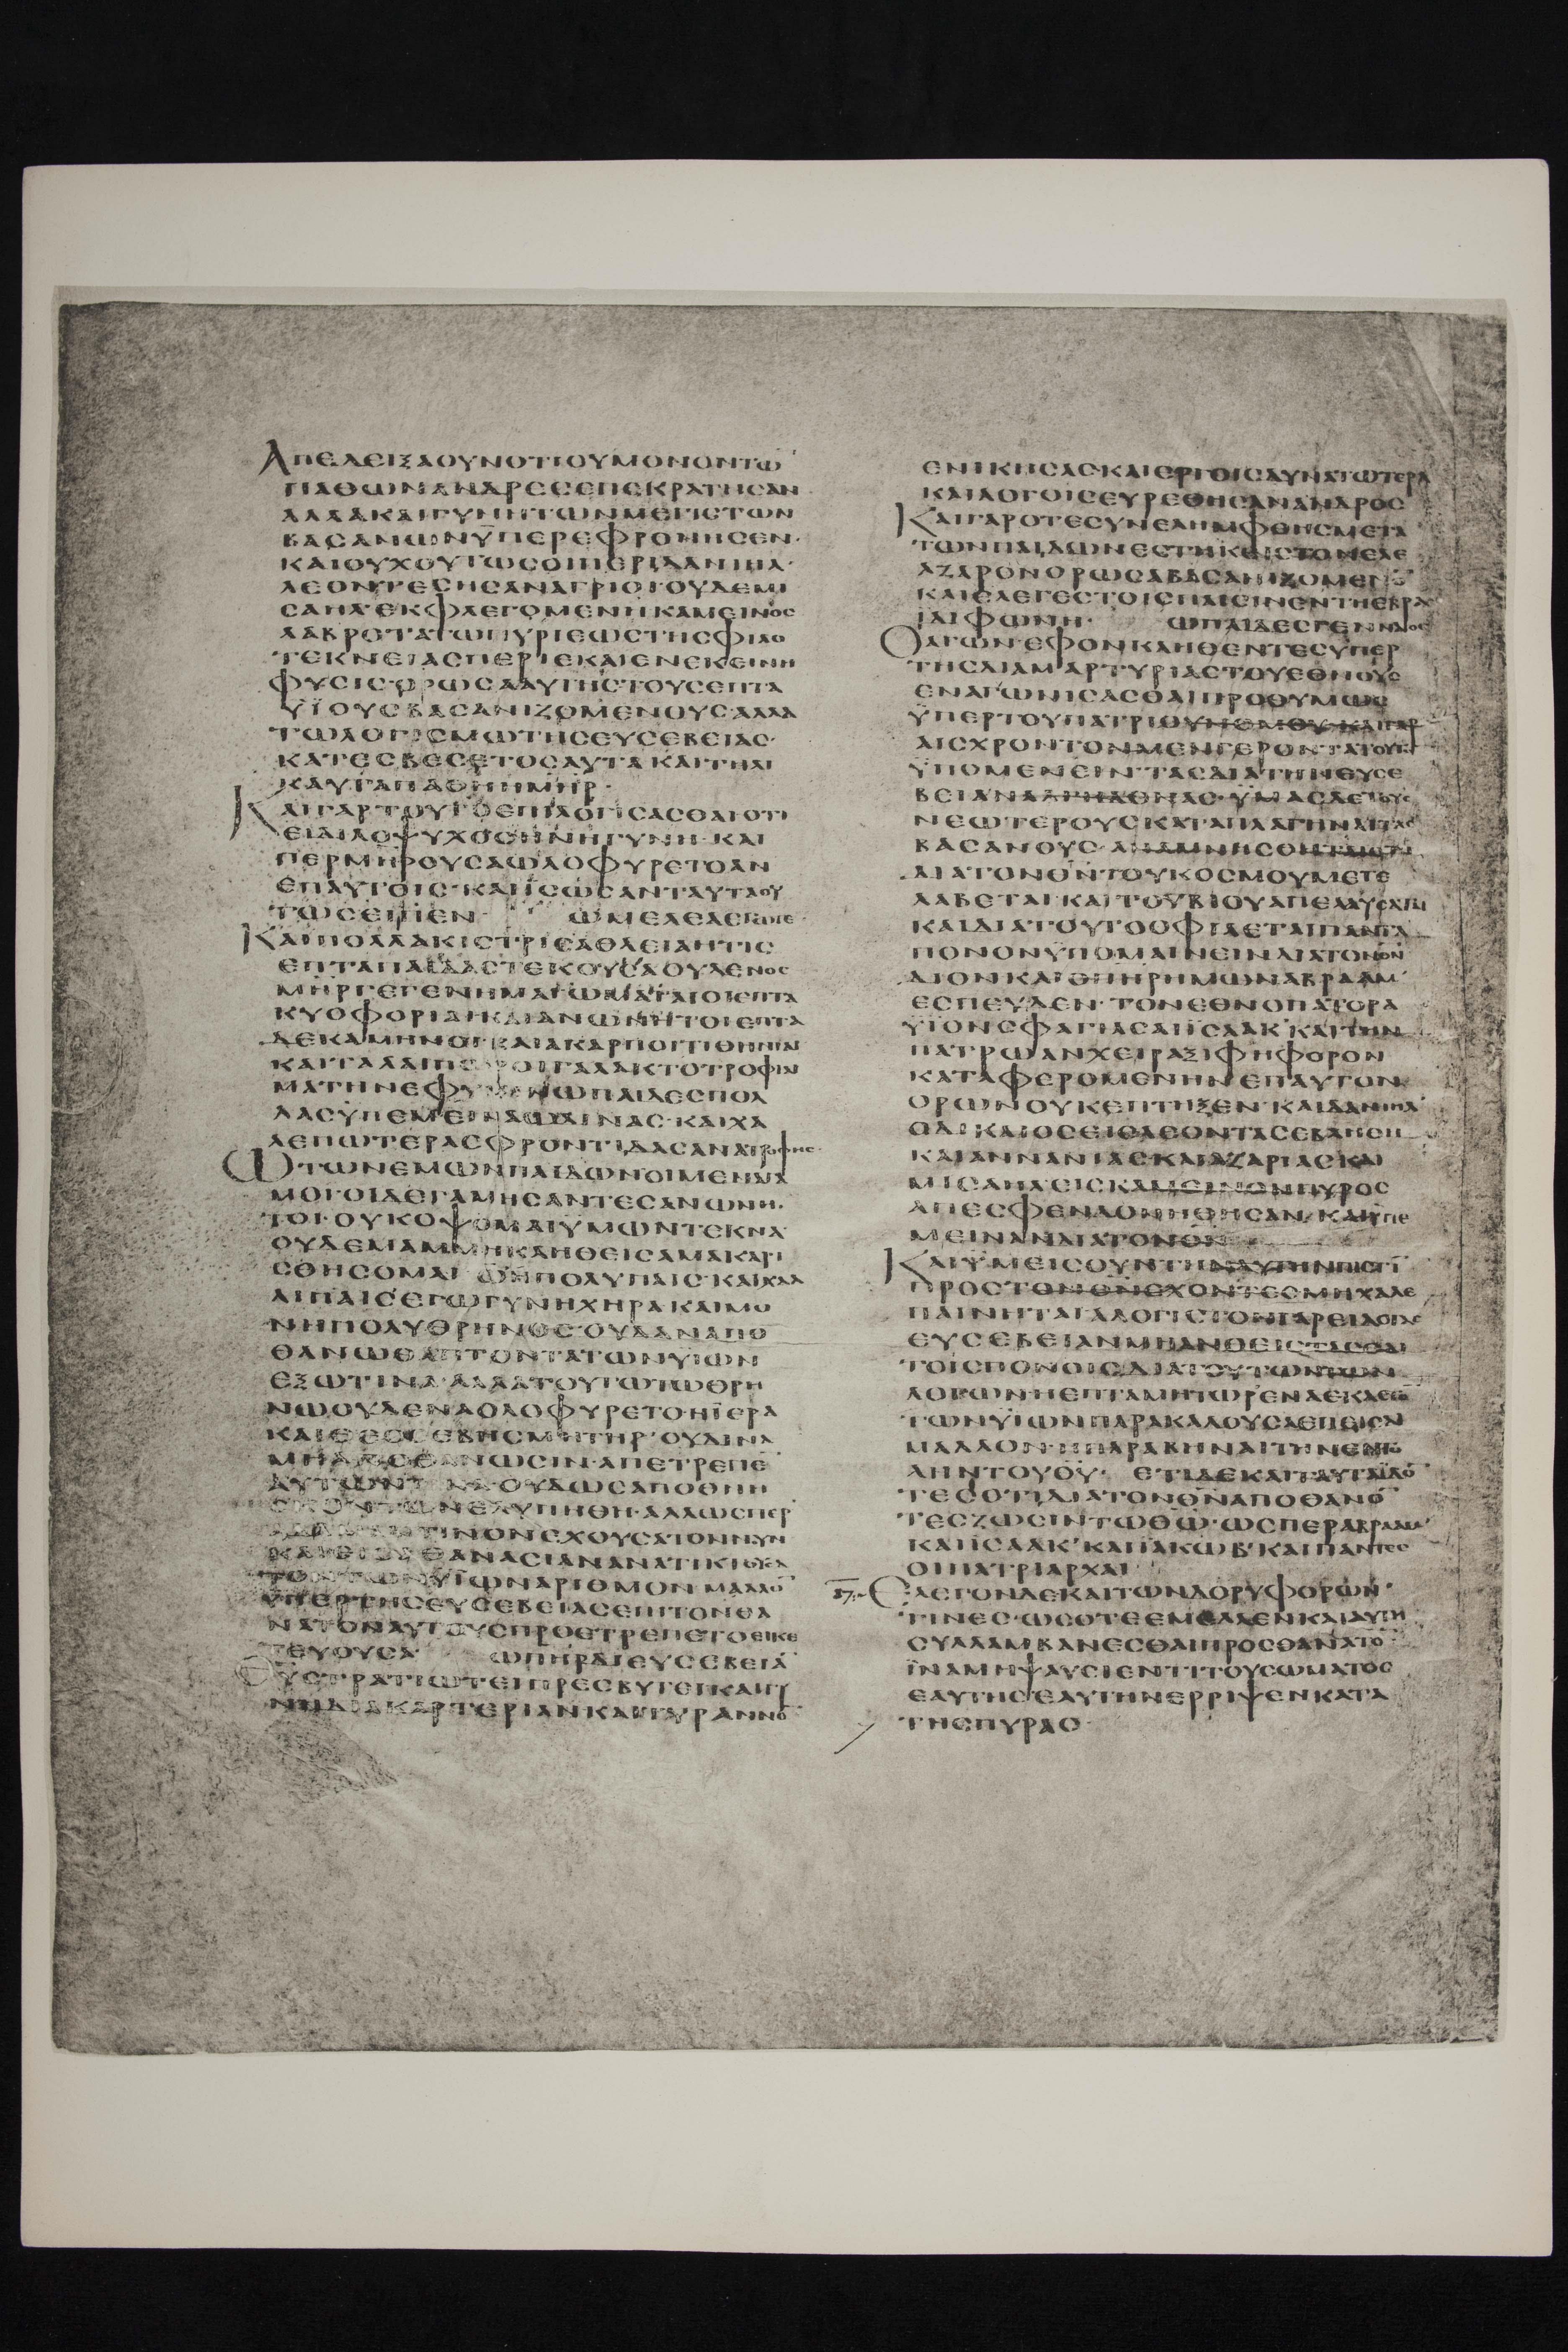 ΑΠΕΔΕΙΞΑΟΥΝΟΤΙΟΥΜΟΝΟΝΤΩ̅
ΠΑΘΩΝΑΝΔΡΕΣΕΠΕΚΡΑΤΗΣΑΝ
ΑΛΛΑΚΑΙΓΥΝΗΤΩΝΜΕΓΙΣΤΩΝ
ΒΑΣΑΝΩΝΫΠΕΡΕΦΡΟΝΗΣΕΝ·
ΚΑΙΟΥΧΟΥΤΩΣΟΙΠΕΡΙΔΑΝΙΗΛ·
ΛΕΟΝΤΕΣΗΣΑΝΑΓΡΙΟΙ·ΟΥΔΕΜΙ
ΣΑΗΛ·ΕΚΦΛΕΓΟΜΕΝΗΚΑΜΕΙΝΟΣ
ΛΑΒΡΟΤΑΤΩΠΥΡΙΕΩΣΤΗΣΦΙΛΟ
ΤΕΚΝΕΙΑΣΠΕΡΙΕΚΑΙΕΝΕΚΕΙΝΗ
ΦΥΣΙΣ·ΟΡΩΣΑΑΥΤΗΣΤΟΥΣΕΠΤΑ
ΥΪΟΥΣΒΑΣΑΝΙΖΟΜΕΝΟΥΣ·ΑΛΛΑ
ΤΩΛΟΓΙΣΜΩΤΗΣΕΥΣΕΒΕΙΑΣ·
ΚΑΤΕΣΒΕΣΕΤΟΣΑΥΤΑΚΑΙΤΗΛΙ
ΚΑΥΤΑΠΑΘΗΗΜΗΡ·
ΚΑΙΓΑΡΤΟΥΤΟΕΠΙΛΟΓΙΣΑΣΘΑΙΟΤΙ
ΕΙΔΙΛΟΨΥΧΟΣΗΝΗΓΥΝΗ·ΚΑΙ
ΠΕΡΜΗΡΟΥΣΑΩΛΟΦΥΡΕΤΟΑΝ
ΕΠΑΥΤΟΙΣ·ΚΑΙΙΣΩΣΑΝΤΑΥΤΑΟΥ
ΤΩΣΕΙΠΕΝ·
ΚΑΙΠΟΛΛΑΚΙΣΤΡΙΣΑΘΛΕΙΑΗΤΙΣ
ΕΠΤΑΠΑΙΔΑΣΤΕΚΟΥΣΑΟΥΔΕΝΟΣ
ΜΗΡΓΕΓΕΝΗΜΑΙΩΜΑΤΑΙΟΙΕΠΤΑ
ΚΥΟΦΟΡΙΑΙΚΑΙΑΝΩΝΗΤΟΙΕΠΤΑ
ΔΕΚΑΜΗΝΟΙΚΑΙΑΚΑΡΠΟΙΤΙΘΗΝΙΑΙ
ΜΑΤΗΝΕΦΥΜΕΙΝΩΠΑΙΔΕΣΠΟΛ
ΛΑΣΫΠΕΜΕΙΝΑΩΔΙΝΑΣ·ΚΑΙΧΑ
ΛΕΠΩΤΕΡΑΣΦΡΟΝΤΙΔΑΣΑΝΑΤΡΟΦΗΣ·
ΩΤΩΝΕΜΩΝΠΑΙΔΩΝΟΙΜΕΝΑΓΑ
ΜΟΙΟΙΔΕΓΑΜΗΣΑΝΤΕΣΑΝΩΝΗ·
ΤΟΙ·ΟΥΚΟΨΟΜΑΙΥΜΩΝΤΕΚΝΑ
ΟΥΔΕΜΑΜΜΗΚΛΗΘΕΙΣΑΜΑΚΑΡΙ
ΣΘΗΣΟΜΑΙ ΩΗΠΟΛΥΠΑΙΣ·ΚΑΙΚΑΛ
ΛΙΠΑΙΣΕΓΩΓΥΝΗΧΗΡΑΚΑΙΜΟ
ΝΗΠΟΛΥΘΡΗΝΟΣ·ΟΥΔΑΝΑΠΟ
ΘΑΝΩΘΑΠΤΟΝΤΑΤΩΝΥΙΩΝ
ΕΞΩΤΙΝΑ·ΑΛΛΑΤΟΥΤΩΤΩΘΡΗ
ΝΩΟΥΔΕΝΑΟΛΟΦΥΡΕΤΟΗΪΕΡΑ
ΚΑΙΘΕΟΣΕΒΗΣΜΗΤΗΡ·ΟΥΔΙΝΑ
ΜΗΑΠΟΘΑΝΩΣΙΝ·ΑΠΕΤΡΕΠΕ
ΝΕΛΥΠΗΘΗ·ΑΛΛΩΣΠΕΡ
ΤΙΝΟΝΕΧΟΥΣΑΤΟΝΝΥΝ
ΥΪΩΝΑΡΙΘΜΟΝ·ΜΑΛΛΟ̅
ΥΠΕΡΤΗΣΕΥΣΕΒΕΙΑΣΕΠΙΤΟΝΘΑ
ΝΑΤΟΝΑΥΤΟΥΣΠΡΟΕΤΡΕΠΕΤΟΕΙΚΕ
ΤΕΥΟΥΣΑ ΩΜΗΡΔΙΕΥΣΕΒΕΙΑ̅
ΘΥΣΤΡΑΤΙΩΤΕΙΠΡΕΣΒΥΤΕΙΚΑΙΓΥ
ΝΗΔΙΑΚΑΡΤΕΡΙΑΝΚΑΙΤΥΡΑΝΝΟ̅
ΕΝΙΚΗΣΑΣΚΑΙΕΡΓΟΙΣΔΥΝΑΤΩΤΕΡΑ
ΚΑΙΛΟΓΟΙΣΕΥΡΕΘΗΣΑΝΑΝΔΡΟΣ
ΚΑΙΓΑΡΟΤΕΣΥΝΕΛΗΜΦΘΗΣΜΕΤΑ
ΤΩΝΠΑΙΔΩΝΕΣΤΗΚΕΙΣΤΟΝΕΛΕ
ΑΖΑΡΟΝΟΡΩΣΑΒΑΣΑΝΙΖΟΜΕΝΟ̅
ΚΑΙΕΛΕΓΕΣΤΟΙΣΠΑΙΣΙΝΕΝΤΗΕΒΡΑ
ΙΔΙΦΩΝΗ· ΩΠΑΙΔΕΣΓΕΝΝΑΙΟΣ
ΟΑΓΩΝ·ΕΦΟΝΚΛΗΘΕΝΤΕΣΥΠΕΡ
ΤΗΣΔΙΑΜΑΡΤΥΡΙΑΣΤΟΥΕΘΝΟΥΣ
ΕΝΑΓΩΝΙΣΑΣΘΑΙΠΡΟΘΥΜΩΣ
ΫΠΕΡΤΟΥΠΑΤΡΙΟΥΝΟΜΟΥ·ΚΑΙΓΑΡ
ΑΙΣΧΡΟΝΤΟΝΜΕΝΓΕΡΟΝΤΑΤΟΥΤΟ̅
ΫΠΟΜΕΝΕΙΝ·ΤΑΣΔΙΑΤΗΝΕΥΣΕ
ΒΕΙΑΝΑΛΓΗΔΟΝΑΣ·ΥΜΑΣΔΕΤΟΥΣ
ΝΕΩΤΕΡΟΥΣΚΑΤΑΠΛΑΓΗΝΑΙΤΑΣ
ΒΑΣΑΝΟΥΣ·ΑΝΑΜΝΗΣΘΗΤΑΙΟΤΙ
ΔΙΑΤΟΝΘ̅Ν̅ΤΟΥΚΟΣΜΟΥΜΕΤΕ
ΛΑΒΕΤΑΙΚΑΙΤΟΥΒΙΟΥΑΠΕΛΑΥΣΑΤΑΙ
ΚΑΙΔΙΑΤΟΥΤΟΟΦΙΛΕΤΑΙΠΑΝΤΑ
ΠΟΝΟΝΥΠΟΜΑΙΝΕΙΝΔΙΑΤΟΝΘ̅Ν̅
ΔΙΟΝΚΑΙΟΠΗΡΗΜΩΝΑΒΡΑΑΜ·
ΕΣΠΕΥΔΕΝ·ΤΟΝΕΘΝΟΠΑΤΟΡΑ
ΥΪΟΝΣΦΑΓΙΑΣΑΙΙΣΑΑΚ·ΚΑΙΤΗΝ
ΠΑΤΡΩΑΝΧΕΙΡΑΞΙΦΗΦΟΡΟΝ
ΚΑΤΑΦΕΡΟΜΕΝΗΝΕΠΑΥΤΟΝ
ΟΡΩΝΟΥΚΕΠΤΗΞΕΝ·ΚΑΙΔΑΝΙΗΛ·
ΟΔΙΚΑΙΟΣΕΙΣΛΕΟΝΤΑΣΕΒΛΗΘΗ
ΚΑΙΑΝΝΑΝΙΑΣΚΑΙΑΖΑΡΙΑΣΚΑΙ
ΜΙΣΑΗΛ·ΕΙΣΚΑΜΕΙΝΟΝΠΥΡΟΣ
ΑΠΕΣΦΕΝΔΟΝΗΘΗΣΑΝ·ΚΑΙΫΠΕ
ΜΕΙΝΑΝΔΙΑΤΟΝΘ̅Ν̅
ΚΑΙΫΜΕΙΣΟΥΝΤΗΝΑΥΤΗΝΠΙΣΤΙ̅
ΠΡΟΣΤΟΝΘ̅Ν̅ΕΧΟΝΤΕΣΜΗΧΑΛΕ
ΠΑΙΝΗΤΑΙΑΛΟΓΙΣΤΟΝΓΑΡΕΙΔΟΤΑΣ
ΕΥΣΕΒΕΙΑΝΜΗΑΝΘΕΙΣΤΑΣΘΑΙ
ΤΟΙΣΠΟΝΟΙΣΔΙΑΤΟΥΤΩΝΤΩΝ
ΛΟΓΩΝΗΕΠΤΑΜΗΤΩΡΕΝΑΕΚΑΣΤΟ̅
ΤΩΝΥΪΩΝΠΑΡΑΚΑΛΟΥΣΑΕΠΕΙΣΕΝ
ΜΑΛΛΟΝ·ΗΠΑΡΑΒΗΝΑΙΤΗΝΕΝΤΟ
ΛΗΝΤΟΥΘ̅Υ̅· ΕΤΙΔΕΚΑΙΤΑΥΤΑΪΔΟ̅
ΤΕΣΟΤΙΔΙΑΤΟΝΘ̅Ν̅ΑΠΟΘΑΝΟ̅
ΤΕΣΖΩΣΙΝΤΩΘ̅Ω̅·ΩΣΠΕΡΑΒΡΑΑΜ
ΚΑΙΪΣΑΑΚ·ΚΑΙΪΑΚΩΒ·ΚΑΙΠΑΝΤΕΣ
ΟΙΠΑΤΡΙΑΡΧΑΙ
ΕΛΕΓΟΝΔΕΚΑΙΤΩΝΔΟΡΥΦΟΡΩΝ·
ΤΙΝΕΣ·ΩΣΟΤΕΕΜΕΛΛΕΝΚΑΙΑΥΤΗ
ΣΥΛΛΑΜΒΑΝΕΣΘΑΙΠΡΟΣΘΑΝΑΤΟ̅
ΪΝΑΜΗΨΑΥΣΙΕΝΤΙΤΟΥΣΩΜΑΤΟΣ
ΕΑΥΤΗΣ·ΕΑΥΤΗΝΕΡΡΙΨΕΝΚΑΤΑ
ΤΗΣΠΥΡΑΣ·